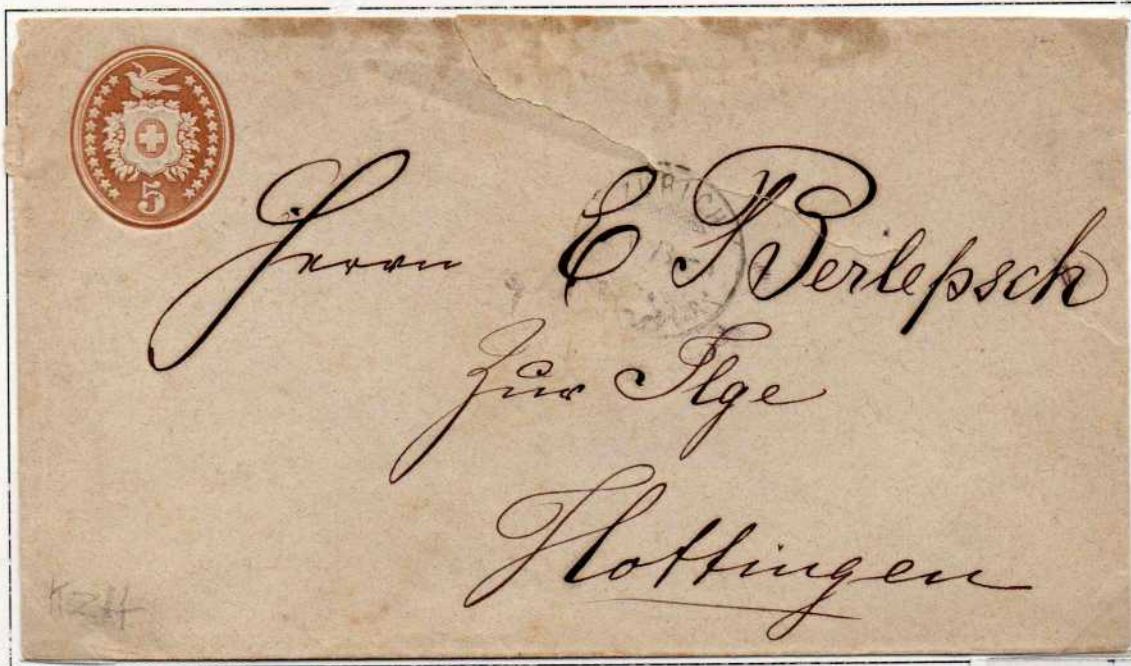 5
ZÜRICH
Herrn E Berlepsch
Zur Ilge
Hottingen